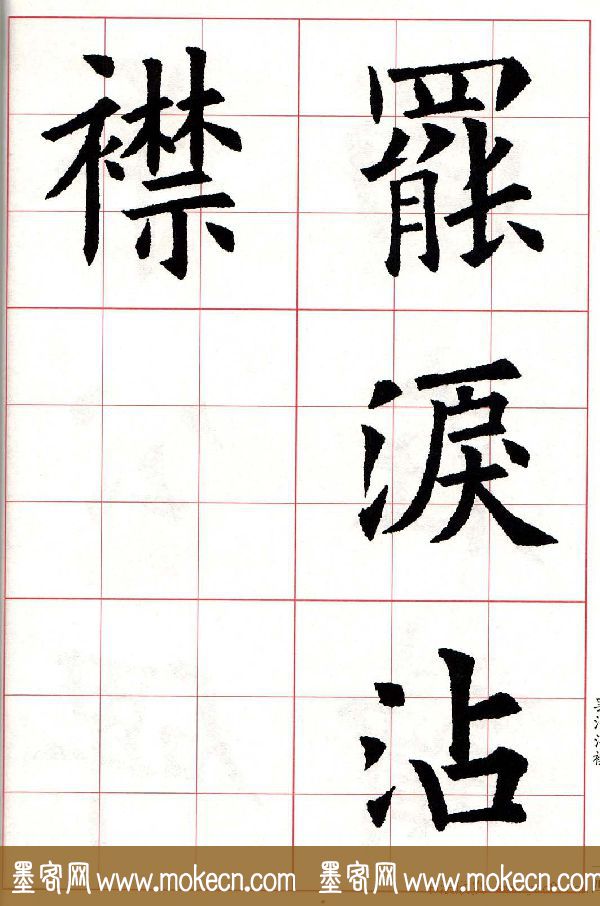 罷淚沾
襟
墨客网 www.mokecn.com 墨客网 www.mokecn.com